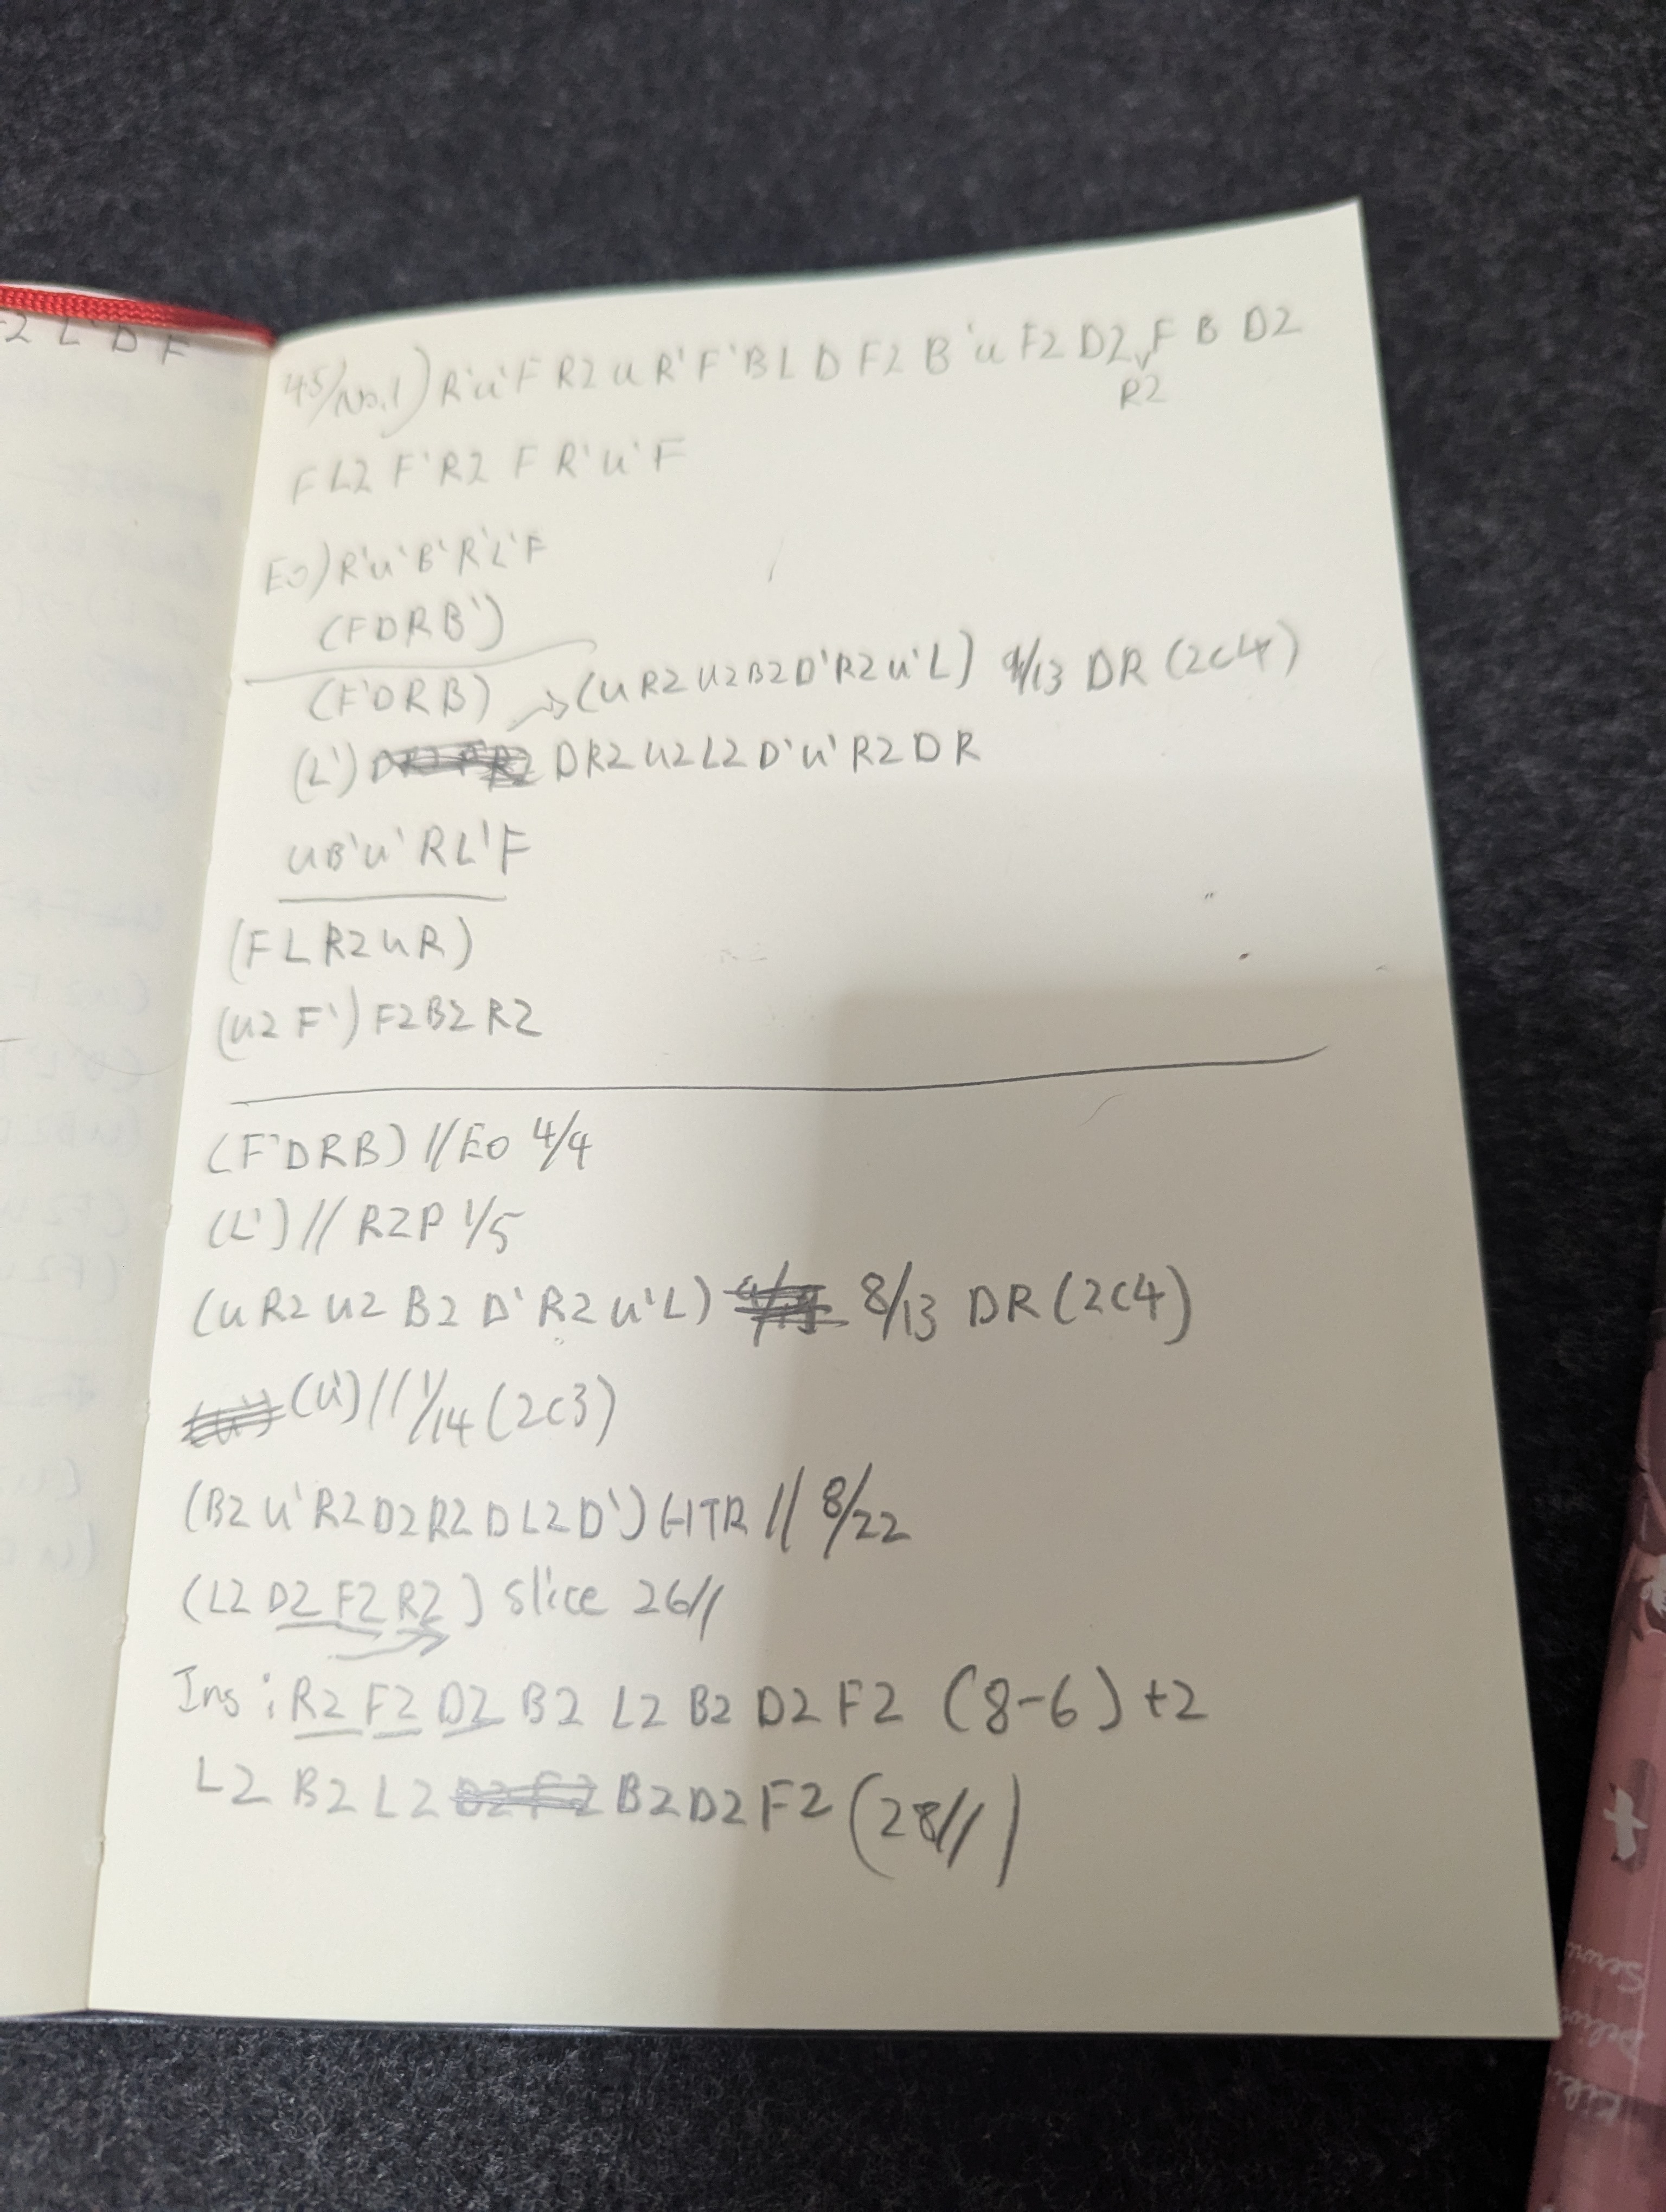 2 L' D F
45/No.1) R'u'F R2 u R'F'BL D F2 B'u F2 D2 F B D2
R2
F L2 F'R2 F R'u'F
EO) R'u'B'R'L'F
(FDRB')
(F'DRB) → (u R2 u2 B2 D'R2 u'L) 9/13 DR (2c4)
(L') DR2 u2 L2 D'u' R2 D R
uB'u' RL'F
(FL R2 u R)
(u2 F') F2 B2 R2
(F'DRB) //EO 4/4
(L') // RZP 1/5
(u R2 u2 B2 D' R2 u'L) 8/13 DR (2c4)
(u') // 1/14 (2c3)
(B2 u'R2 D2 R2 D L2 D') HTR // 8/22
(L2 D2 F2 R2) slice 26//
Ins: R2 F2 D2 B2 L2 B2 D2 F2 (8-6) +2
L2 B2 L2 B2 D2 F2 (28//)